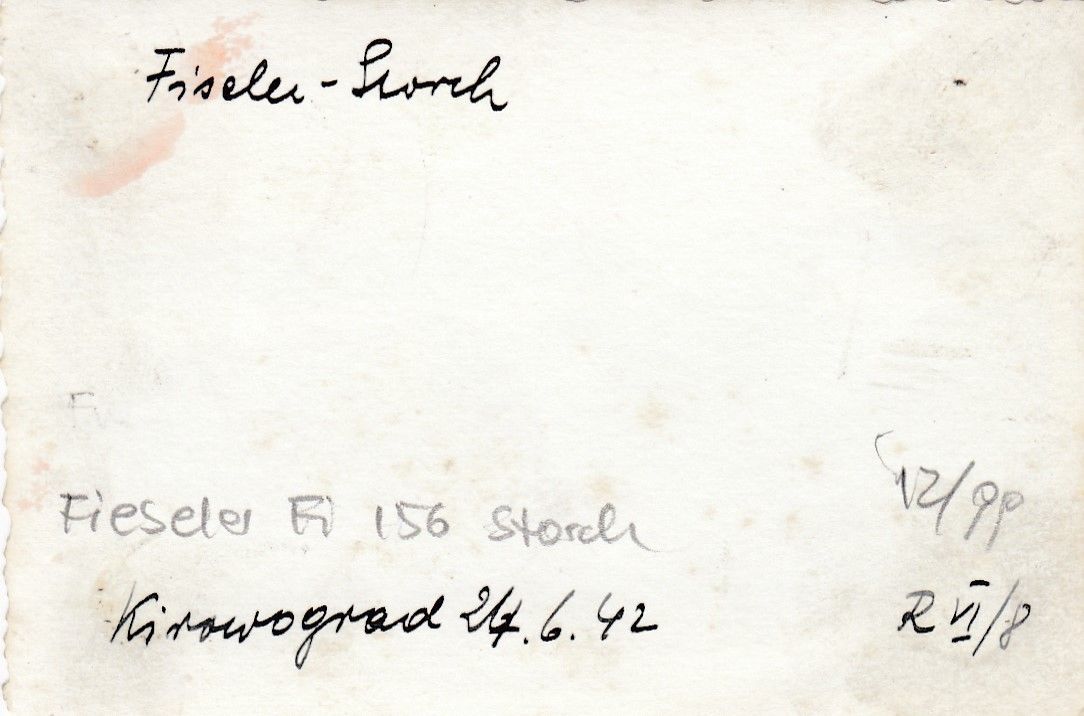 Fiseler-Storch
Fieseler Fi 156 Storch
Kirowograd 24.6.42
R VI/8